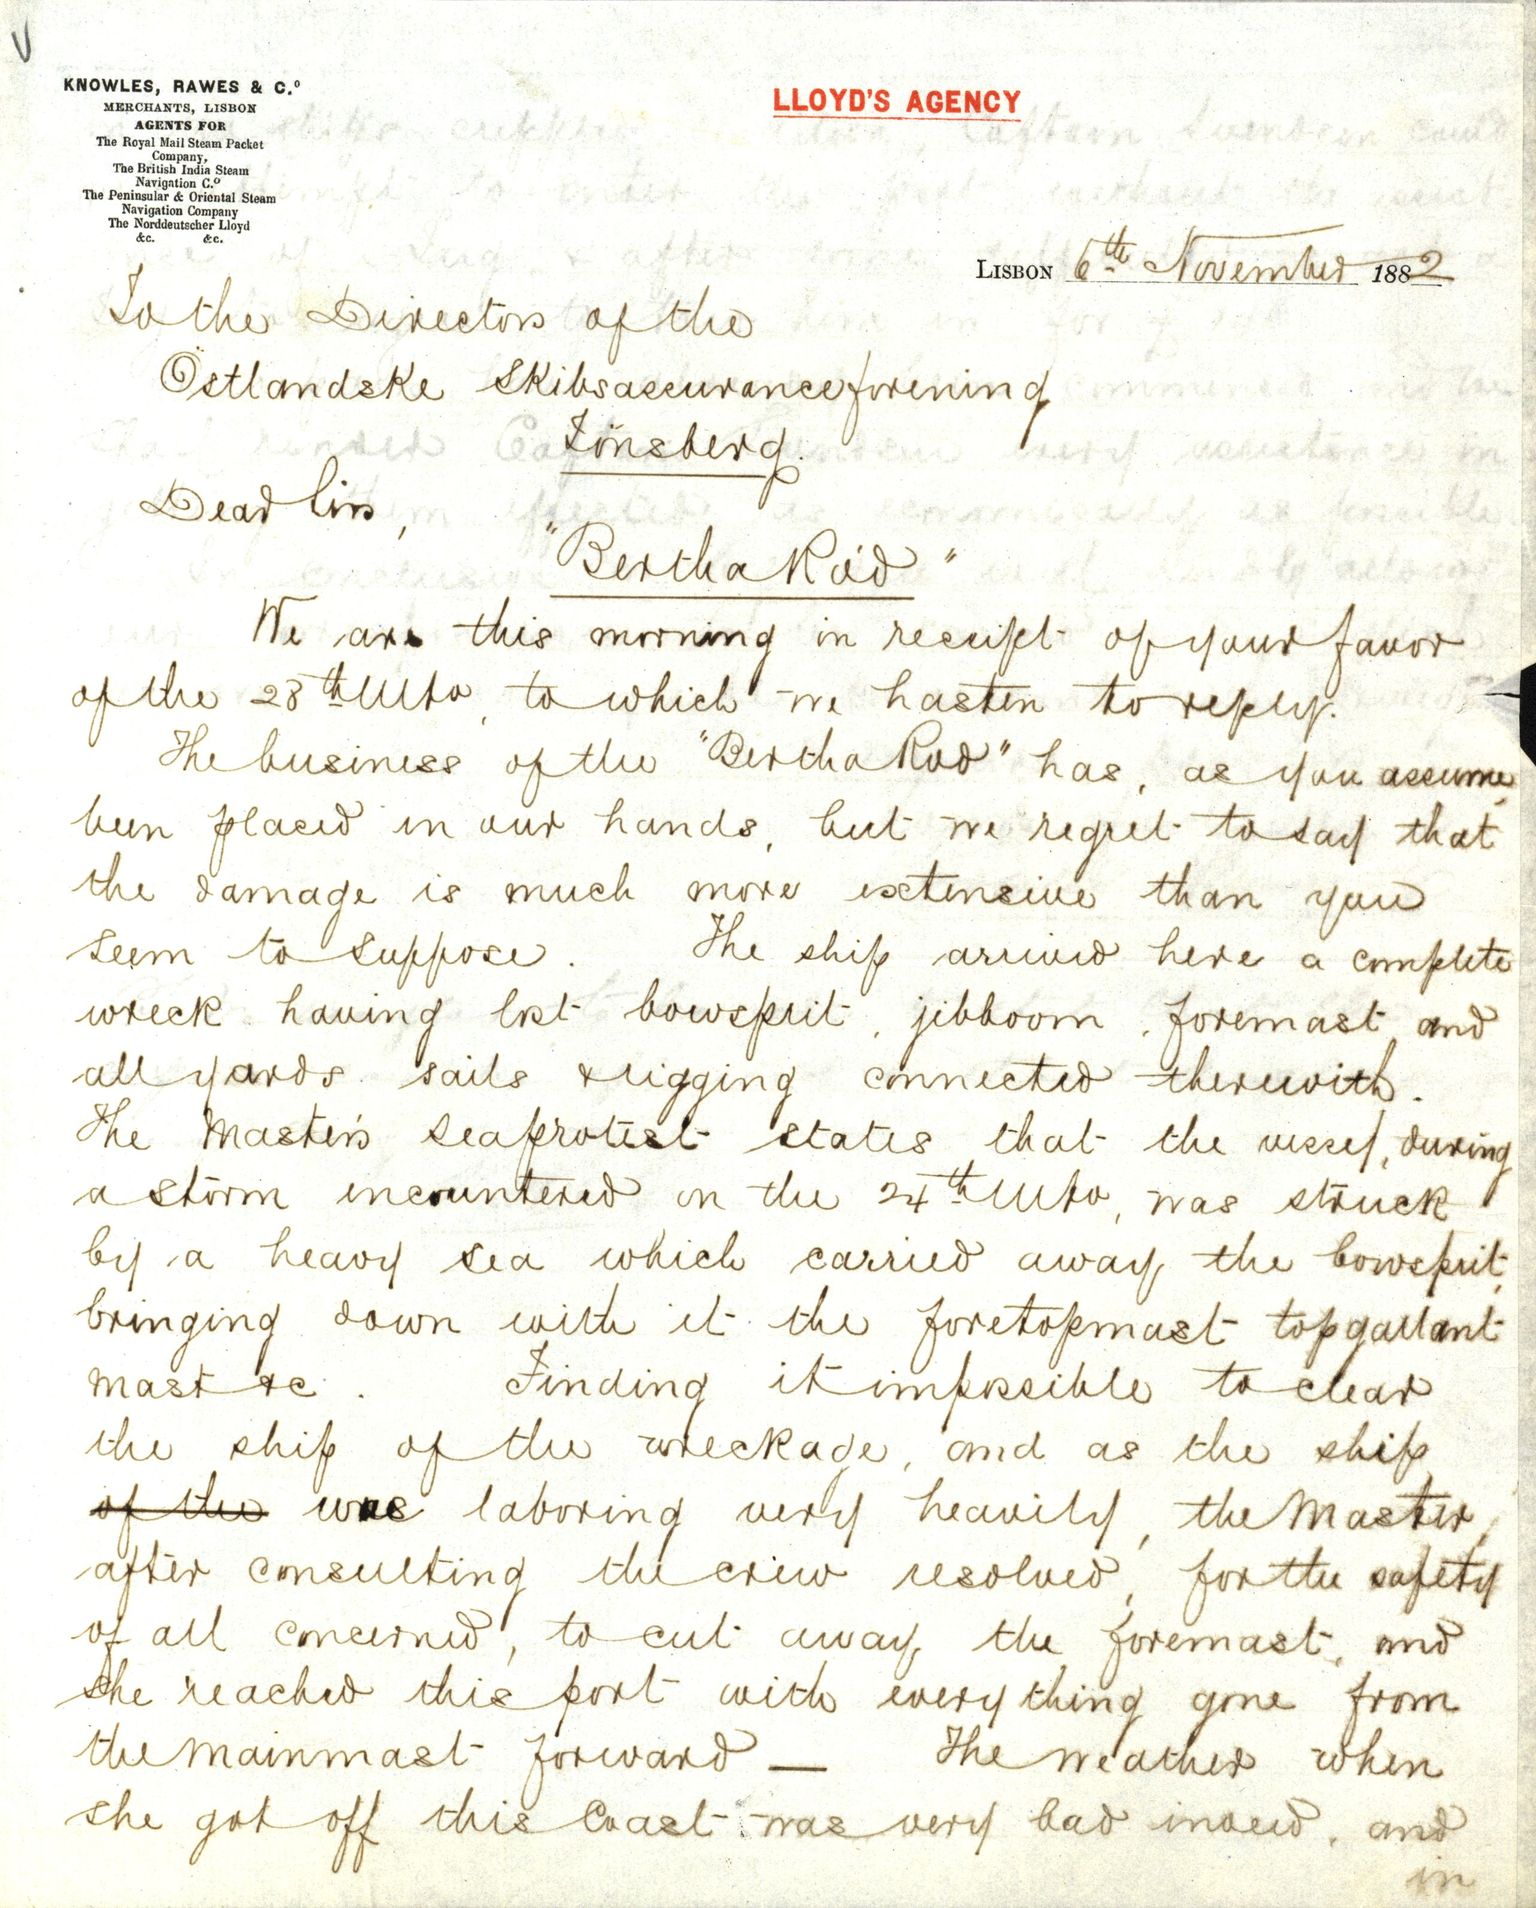 KNOWLES, RAWES & C.º
MERCHANTS, LISBON
AGENTS FOR
The Royal Mail Steam Packet
Company,
The British India Steam
Navigation C.º
The Peninsular & Oriental Steam
Navigation Company
The Norddeutscher Lloyd
&c. &c.
LLOYD'S AGENCY
LISBON 6th November 1882
To the Directors of the
Östlandske Skibsassuranceforening
Tönsberg.
Dear Sirs,
"Bertha Röd"
We are this morning in receipt of your favor
of the 28th Ulto, to which we hasten to reply.
The business of the "Bertha Rod" has, as you assume,
been placed in our hands, but we regret to say that
the damage is much more extensive than you
seem to suppose. The ship arrived here a complete
wreck having lost bowsprit, jibboom, foremast, and
all yards sails & rigging connected therewith.
The Master's Seaprotest states that the vessel, during
a storm encountered on the 24th Ulto, was struck
by a heavy sea which carried away the bowsprit,
bringing down with it the foretopmast topgallant
mast &c. Finding it impossible to clear
the ship of the wreckage, and as the ship
of the was laboring very heavily, the Master,
after consulting the crew resolved, for the safety
of all concerned, to cut away the foremast, and
she reached this port with everything gone from
the mainmast forward — The weather when
she got off this Coast was very bad indeed, and
in